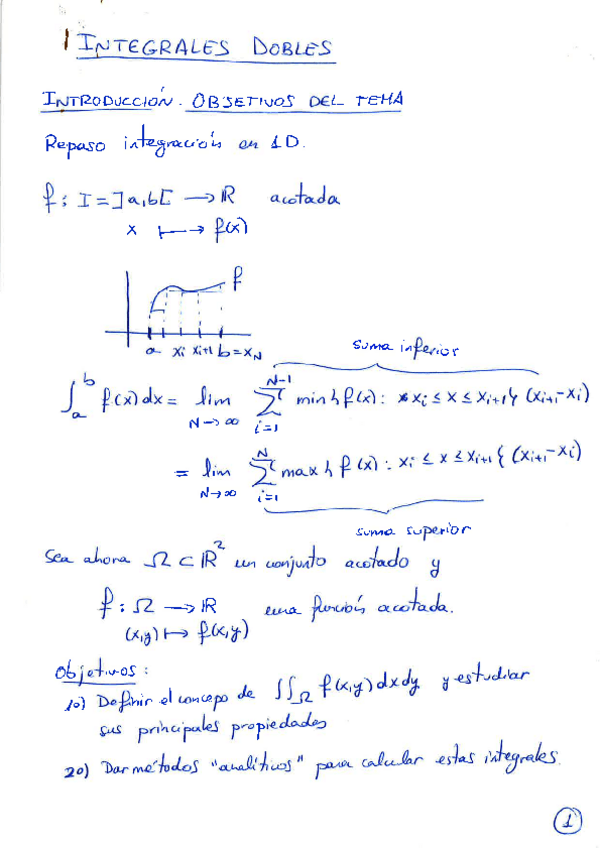 1 INTEGRALES DOBLES
INTRODUCCIÓN. OBJETIVOS DEL TEMA
Repaso integración en 1D.
f: I = ]a,b[ → ℝ acotada
x ↦ f(x)
f
a xi xi+1 b = xN
suma inferior
∫_a^b f(x) dx = lim_{N→∞} ∑_{i=1}^{N-1} min { f(x): x_i ≤ x ≤ x_{i+1} } (x_{i+1} - x_i)
= lim_{N→∞} ∑_{i=1}^{N} max { f(x): x_i ≤ x ≤ x_{i+1} } (x_{i+1} - x_i)
suma superior
Sea ahora Ω ⊂ ℝ² un conjunto acotado y
f: Ω → ℝ una función acotada.
(x,y) ↦ f(x,y)
Objetivos:
1o) Definir el concepo de ∬_Ω f(x,y) dx dy y estudiar
sus principales propiedades
2o) Dar métodos "analíticos" para calcular estas integrales.
1